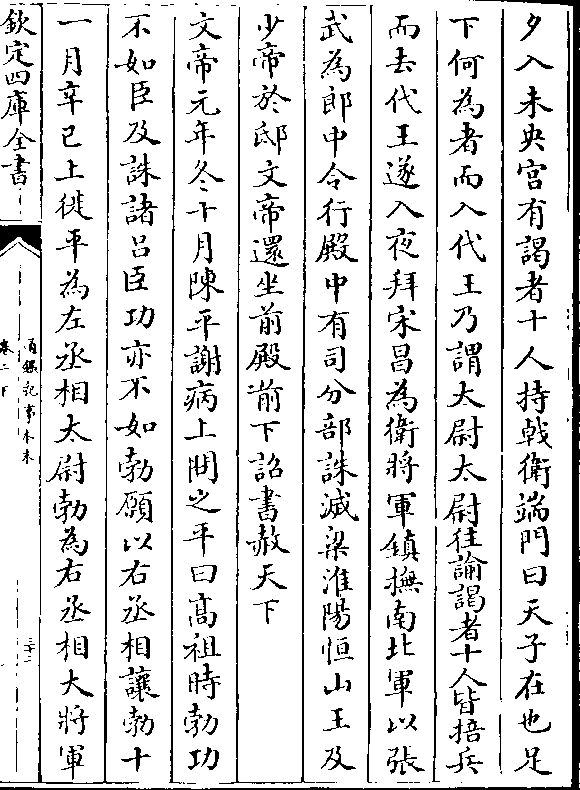 夕入未央宫有謁者十人持戟衛端門曰天子在也足
下何為者而入代王乃謂太尉太尉往諭謁者十人皆掊兵
而去代王遂入夜拜宋昌為衛將軍鎮撫南北軍以張
武為郎中令行殿中有司分部誅滅梁淮陽恒山王及
少帝於邸文帝還坐前殿前下詔書赦天下
文帝元年冬十月陳平謝病上問之平曰高祖時勃功
不如臣及誅諸吕臣功亦不如勃願以右丞相讓勃十
一月辛已上徙平為左丞相太尉勃為右丞相大將軍
欽定四庫全書
通鑑紀事本末
卷二下
三十二